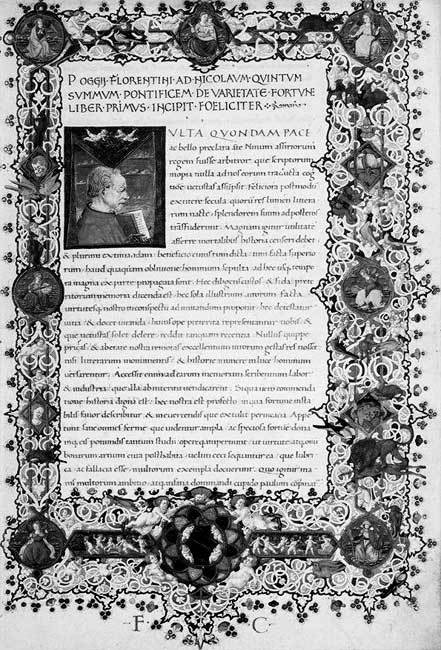 POGGII FLORENTINI AD NICOLAVM QVINTVM
SVMMVM PONTIFICEM DE VARIETATE FORTVNE
LIBER PRIMVS INCIPIT FOELICITER
MVLTA QVONDAM PACE
ac bello preclara ante Ninum assiriorum
regem fuisse arbitror que scriptorum
inopia nulla ad nos eorum traducta cog
nitione vetustas assumpsit. Feliciora postmodum
secula quorum res lumen littera
rum nacte splendorem suum ad posteros
transfuderunt. Magnam igitur utilitatem
afferre mortalibus historia censeri debet
& plurimi extimandam beneficio cuius dicta tum facta superio
rum haud quaquam oblivione hominum sepulta ad hec usque tempo
ra magna ex parte propagata sunt. Hec & fida prete
ritorum memoria dicenda est hec sola illustrium virorum facta
virtutesque nostro in conspectu admirandum proponit hec detestatur
vitia & docet vitanda huius ope preterita representantur nobis &
que vetustas solet delere reddit tanquam recentia. Nullus quippe
& labore nostra excellentium virorum gesta res nosse
nisi litterarum monimentis & historie munere in luce hominum
versarentur. Accessit enim ad earum memoriam scribentium labor
& industria que illa ab interitu vendicarent. Siqua vero commenda
tione historia digna est hec nostra est profecto in qua fortune insta
bilis finior describitur & in evertendis que extulit pervicacia. Appe
tunt sane omnes ferme que videntur ampla ac speciosa fortune dona
inque eis ponendis tantum studii opereque impertiunt ut virtute atque
bonarum artium cura posthabita veluti ceci sequantur ea que lubri
ca ac fallacia esse multorum exempla docuerunt. Quo igitur ma
ius multorum ambitio atque infana dominandi cupido paulum
F C